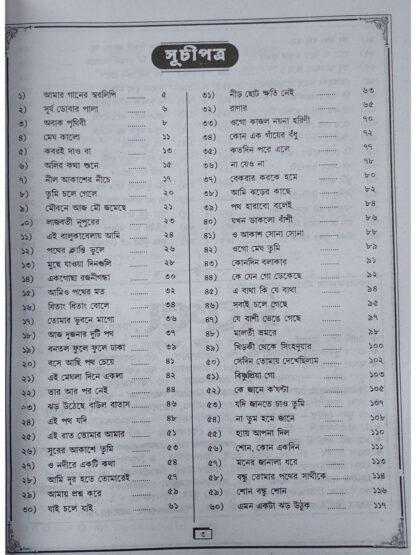 সূচীপত্র
১) আমার গানের স্বরলিপি ........ ৫
২) সূর্য ডোবার পালা ........ ৬
৩) অবাক পৃথিবী ........ ৮
৪) মেঘ কালো ........ ১১
৫) কবরই দাও বা ........ ১৩
৬) অলির কথা শুনে ........ ১৫
৭) নীল আকাশের নীচে ........ ১৭
৮) তুমি চলে গেলে ........ ২০
৯) মৌবনে আজ মৌ জমেছে ........ ২১
১০) লাজবতী নূপুরের ........ ২৩
১১) এই বালুকাবেলায় আমি ........ ২৪
১২) পথের ক্লান্তি ভুলে ........ ২৬
১৩) মুছে যাওয়া দিনগুলি ........ ২৮
১৪) একগোছা রজনীগন্ধা ........ ৩০
১৫) আমিও পথের মত ........ ৩২
১৬) ধিতাং ধিতাং বোলে ........ ৩৪
১৭) তোমার ভুবনে মাগো ........ ৩৬
১৮) আজ দুজনার দুটি পথ ........ ৩৭
১৯) বনতল ফুলে ফুলে ঢাকা ........ ৩৯
২০) বসে আছি পথ চেয়ে ........ ৪১
২১) এই মেঘলা দিনে একলা ........ ৪২
২২) তার আর পর নেই ........ ৪৪
২৩) ঝড় উঠেছে বাউল বাতাস ........ ৪৬
২৪) এই পথ যদি ........ ৪৮
২৫) এই রাত তোমার আমার ........ ৫১
২৬) সুরের আকাশে তুমি ........ ৫৩
২৭) ও নদীরে একটি কথা ........ ৫৪
২৮) আমি দূর হতে তোমারেই ........ ৫৭
২৯) আমায় প্রশ্ন করে ........ ৫৯
৩০) যাই চলে যাই ........ ৬১
৩১) নীড় ছোট ক্ষতি নেই ........ ৬৩
৩২) রাণার ........ ৬৫
৩৩) ওগো কাজল নয়না হরিণী ........ ৭০
৩৪) কোন এক গাঁয়ের বঁধু ........ ৭২
৩৫) কতদিন পরে এলে ........ ৭৭
৩৬) না যেও না ........ ৭৮
৩৭) বেকরার করকে হমে ........ ৮০
৩৮) আমি ঝড়ের কাছে ........ ৮২
৩৯) পথ হারাবো বলেই ........ ৮৪
৪০) যখন ডাকলো বাঁশী ........ ৮৬
৪১) ও আকাশ সোনা সোনা ........ ৮৮
৪২) ওগো মেঘ তুমি ........ ৮৯
৪৩) কোনদিন বলাকার ........ ৯১
৪৪) কে যেন গো ডেকেছে ........ ৯২
৪৫) এ ব্যথা কি যে ব্যথা ........ ৯৪
৪৬) সবাই চলে গেছে ........ ৯৫
৪৭) যে বাঁশী ভেঙে গেছে ........ ৯৬
৪৮) মালতী ভ্রমরে ........ ৯৮
৪৯) খিড়কী থেকে সিংহদুয়ার ........ ১০০
৫০) সেদিন তোমায় দেখেছিলাম ........ ১০২
৫১) বিষ্ণুপ্রিয়া গো ........ ১০৩
৫২) কে জানে ক'ঘন্টা ........ ১০৫
৫৩) যদি জানতে চাও তুমি ........ ১০৭
৫৪) না তুম হমে জানে ........ ১০৮
৫৫) হ্যায় আপনা দিল ........ ১১০
৫৬) শোন, কোন একদিন ........ ১১১
৫৭) মনের জানালা ধরে ........ ১১৩
৫৮) বন্ধু তোমার পথের সাথীকে ........ ১১৪
৫৯) শোন বন্ধু শোন ........ ১১৬
৬০) এমন একটা ঝড় উঠুক ........ ১১৭
৩